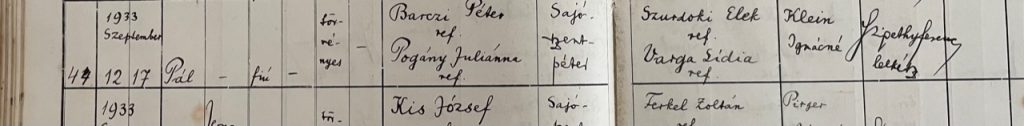 1933
Szeptember
44 12 17 Pál – fiú –
tör-
vé-
nyes
–
Barczi Péter
ref.
Pogány Juliánna
ref.
Sajó-
szent-
péter
Szurdoki Elek
ref.
Varga Lídia
ref.
Klein
Ignácné
Szipethy Ferenc
lelkész
1933
tör-
Kis József
Sajó-
Ferkel Zoltán